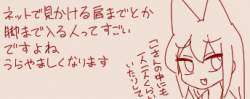 ネットで見かける肩までとか
脚まで入る人ってすごい
ですよね
うらやましくなります
ごさんの中にも
一人二人くらい
いたりして